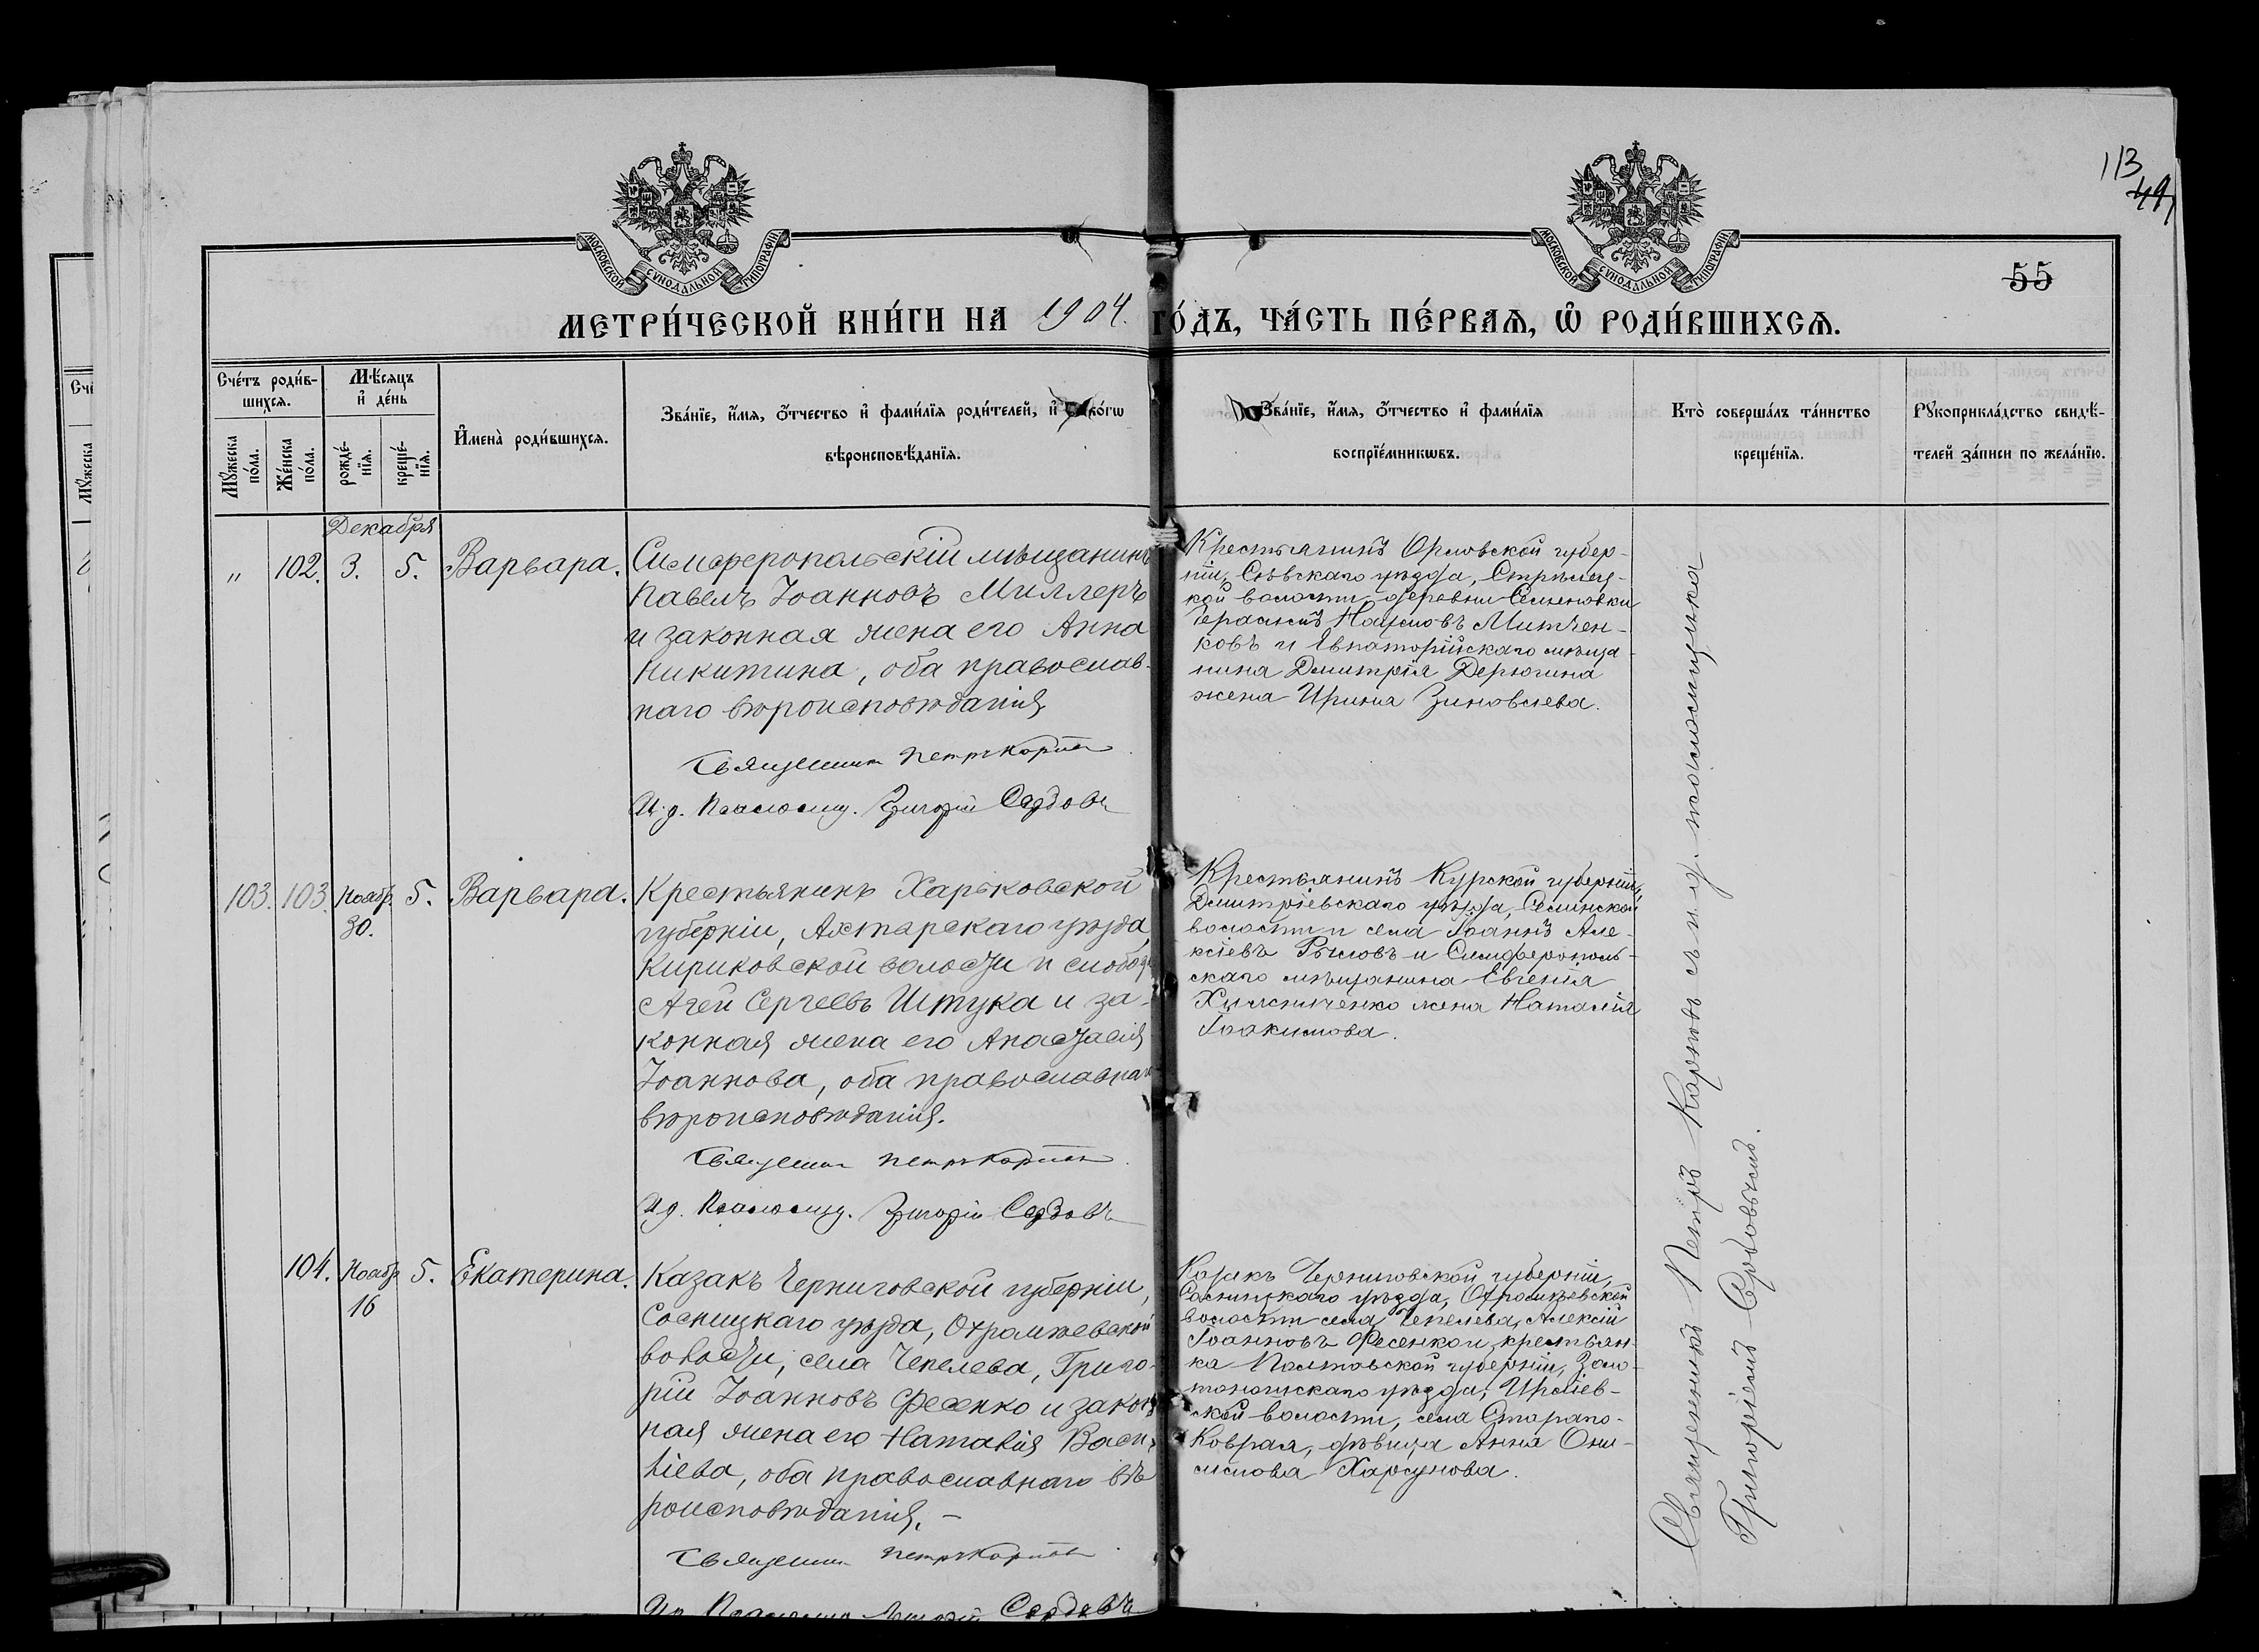 113
49
55
МОСКОВСКОЙ СѴНОДАЛЬНОЙ ТИПОГРАФІИ.
МОСКОВСКОЙ СѴНОДАЛЬНОЙ ТИПОГРАФІИ.
МЕТРИ́ЧЕСКОЙ КНИ́ГИ НА 1904. ГО́ДЪ, ЧА́СТЬ ПЕ́РВАѦ, Ѡ҆ РОДИ́ВШИХСѦ.
Сче́тъ роди́в-
шихсѧ.
Мꙋ́жеска по́ла.
Же́нска по́ла.
Мѣ́сѧцъ
и҆ де́нь
рожде́-
нїѧ.
креще́-
нїѧ.
И҆мена̀ роди́вшихсѧ.
Зва́нїе, и҆́мѧ, ѻ҆́тчество и҆ фами́лїѧ роди́телей, и҆ како́гѡ
вѣроисповѣ́данїѧ.
Зва́нїе, и҆́мѧ, ѻ҆́тчество и҆ фами́лїѧ
воспрїе́мникѡвъ.
Кто̀ соверша́лъ та́инство
креще́нїѧ.
Рꙋкоприкла́дство свидѣ́-
телей за́писи по жела́нїю.
Декабря
" 102. 3. 5. Варвара.
Симферопольскій мѣщанинъ
Павелъ Іоанновъ Миллеръ
и законная жена его Анна
Никитина, оба православ-
наго вѣроисповѣданія
Священник Петръ Карпов
И. д. Псаломщ. Григорій Сердовъ
Крестьянинъ Орловской губер-
ніи, Сѣвскаго уѣзда, Стрѣлец-
кой волости деревни Семеновки
Герасимъ Наумовъ Митчен-
ковъ и Евпаторійскаго мѣща-
нина Дмитрія Дерюгина
жена Ирина Зиновьева.
103. 103. Ноябр. 30. 5. Варвара.
Крестьянинъ Харьковской
губерніи, Ахтырскаго уѣзда,
Кириковской волости и слободы
Агей Сергеевъ Штука и за-
конная жена его Анастасія
Іоаннова, оба православнаго
вѣроисповѣданія.
Священник Петръ Карпов
И д. Псаломщ. Григорій Сердовъ
Крестьянинъ Курской губерніи,
Дмитріевскаго уѣзда,
волости и села Іоаннъ Але-
ксіевъ Рыловъ и Симферополь-
скаго мѣщанина Евгенія
жена Наталія
Іоакимова.
104. Ноябр. 16 5. Екатерина.
Казакъ Черниговской губерніи,
Сосницкаго уѣзда, Охромѣевской
волости, села Чепелева, Григо-
рій Іоанновъ Фесенко и закон-
ная жена его Наталія Васи-
ліева, оба православнаго вѣ-
роисповѣданія. -
Священник Петръ Карпов
Сердовъ
Казакъ Черниговской губерніи,
Сосницкаго уѣзда, Охромѣевской
волости села Чепелева, Алексій
Іоанновъ Фесенко и крестьян-
ка Полтавской губерніи, Золо-
тоношскаго уѣзда, Ирклѣев-
ской волости, села Стараго-
Коврая, дѣвица Анна Они-
симова Харсунова.
Священникъ Петръ Карповъ съ и. д. псаломщика
Григоріемъ Сердовымъ.